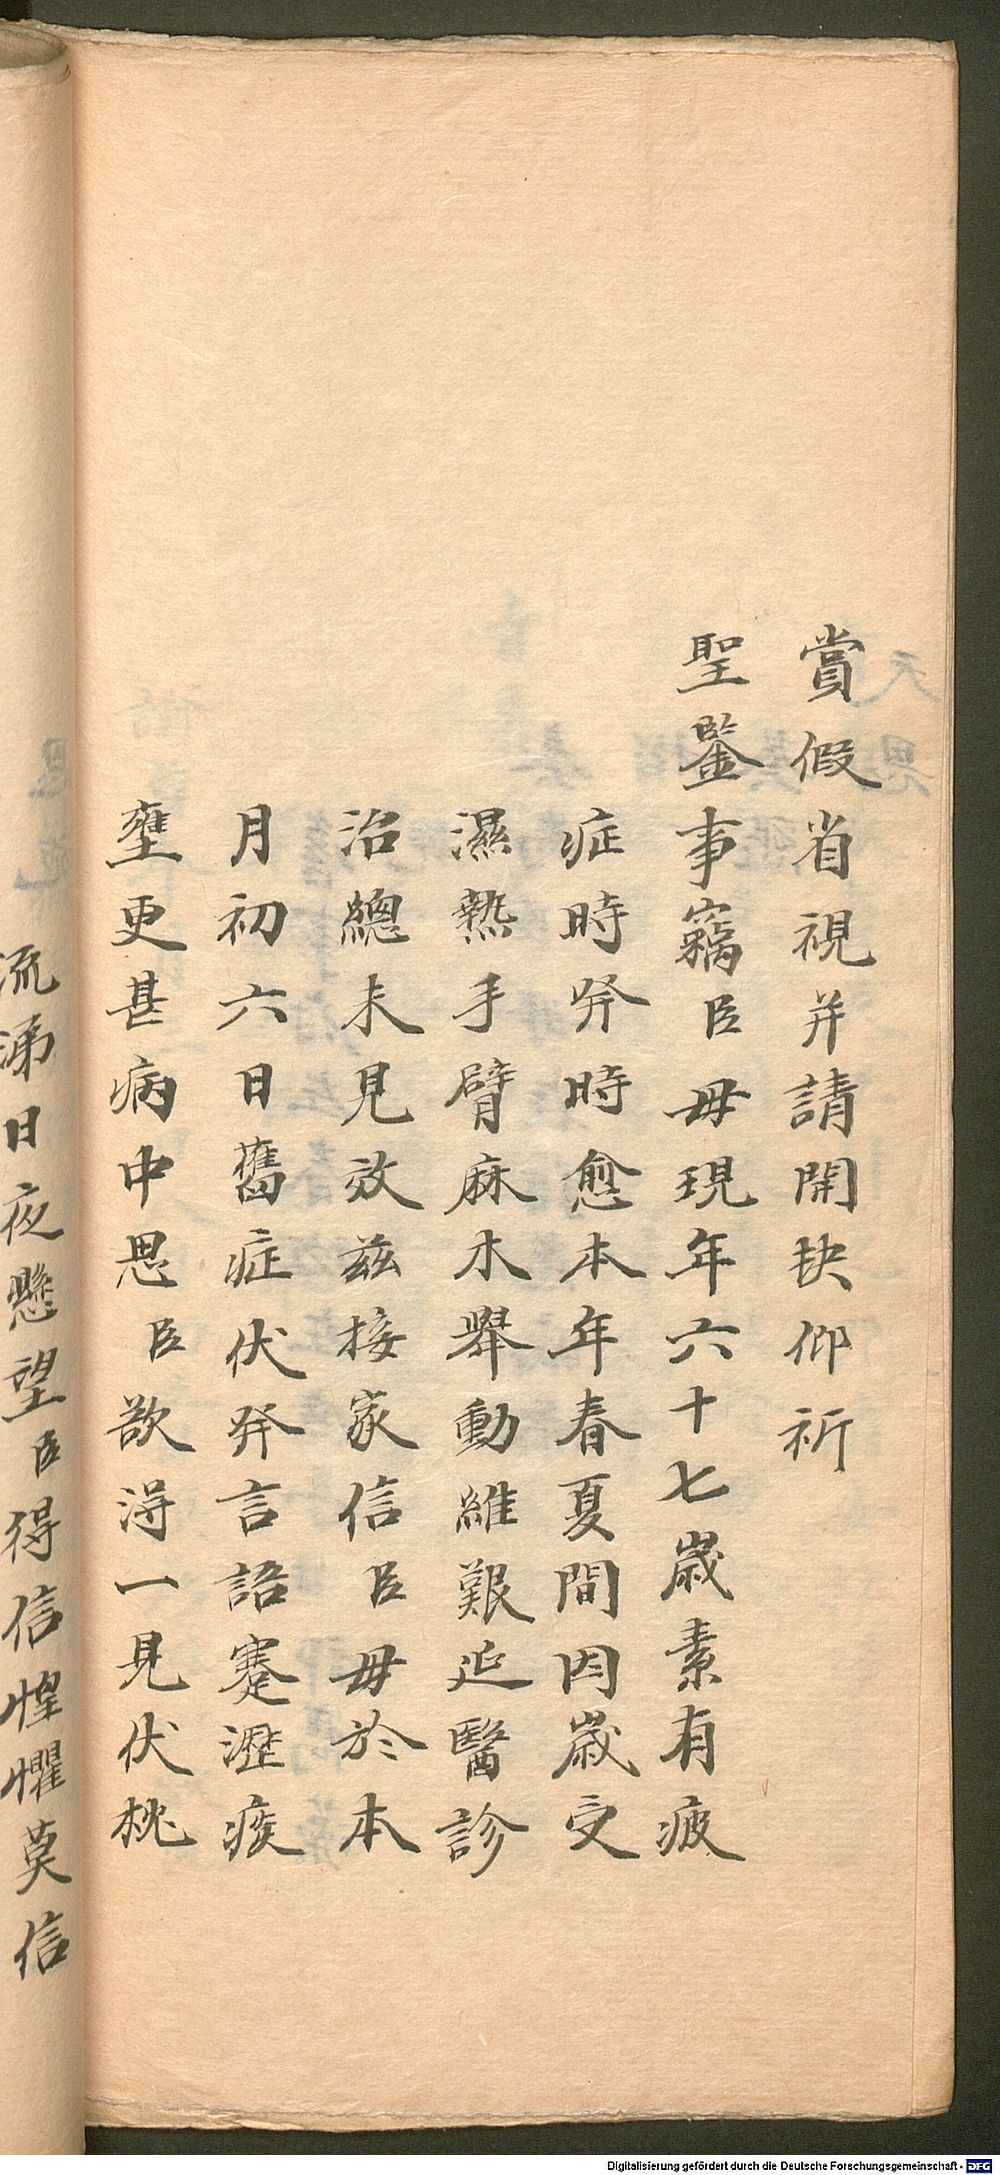 賞假省視并請開缺仰祈
聖鑒事竊臣母現年六十七歲素有疲
症時發時愈本年春夏間因歲受
濕熱手臂麻木舉動維艱延醫診
治總未見效茲接家信臣母於本
月初六日舊症伏發言語蹇澀痰
壅更甚病中思臣欲得一見伏枕
流涕日夜懸望臣得信惶懼莫信
Digitalisierung gefördert durch die Deutsche Forschungsgemeinschaft - DFG